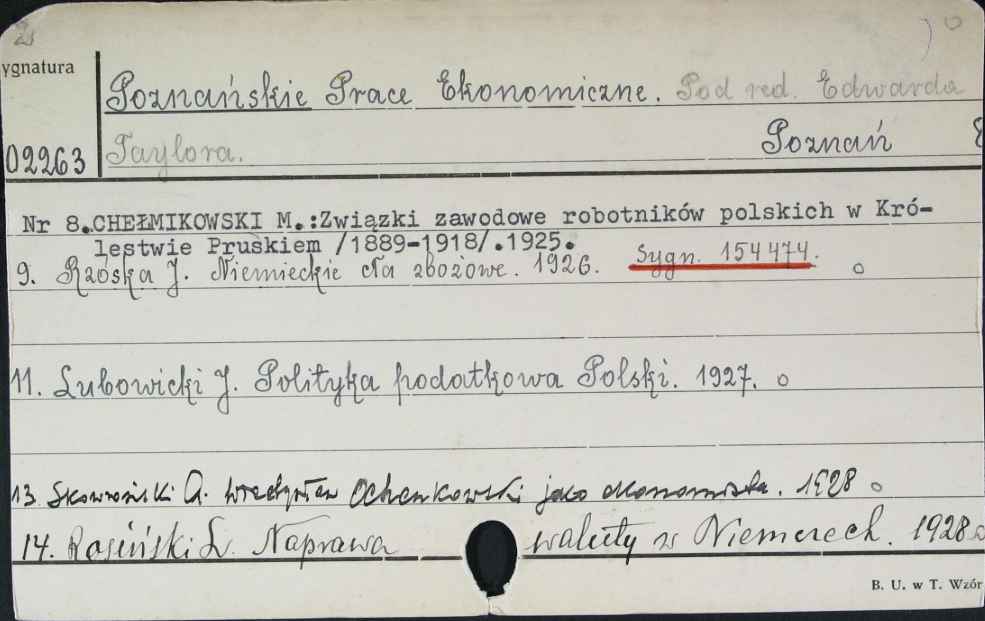 ygnatura
Poznańskie Prace Ekonomiczne. Pod red. Edwarda
02263 Taylora. Poznań 8
Nr 8.CHEŁMIKOWSKI M.:Związki zawodowe robotników polskich w Kró-
lestwie Pruskiem /1889-1918/.1925.
9. Rzóska J. Niemieckie cła zbożowe. 1926. Sygn. 154474.
11. Lubowicki J. Polityka podatkowa Polski. 1927.
13. Skowroński A. Ochenkowski jako ekonomista. 1928
14. Rosiński L. Naprawa waluty w Niemczech. 1928
B. U. w T. Wzór